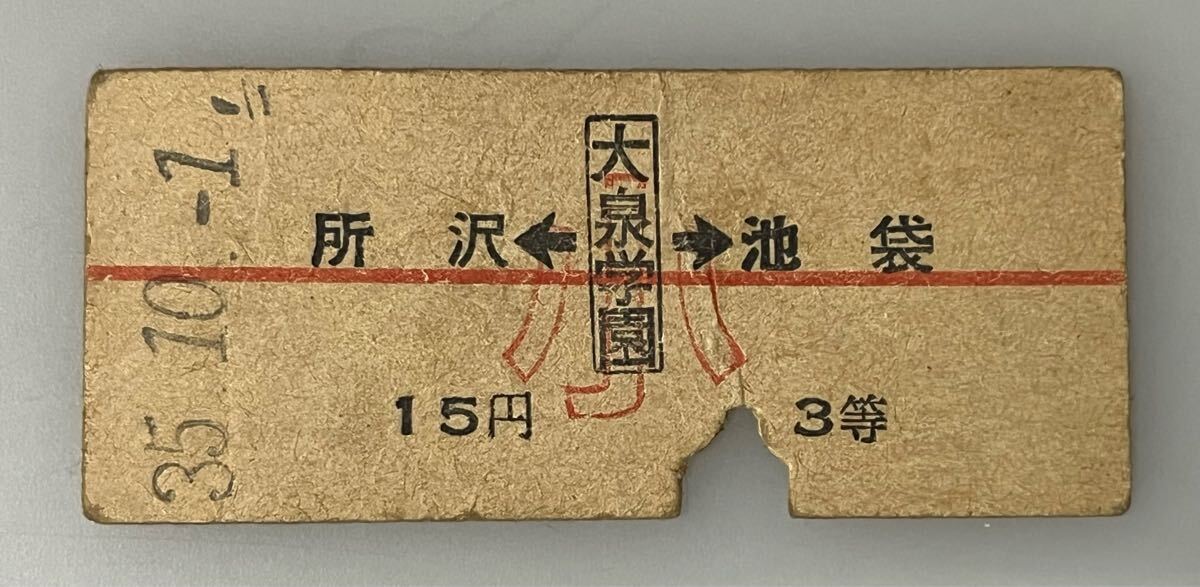 35.10.-1
所沢←大泉学園→池袋
小
15円 3等